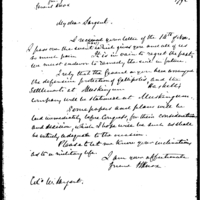 My dear Sargent.
I received your letter of the 12th
I pass over the event which gives you and all of us
so much pain. It is in vain to regret the past,
we must endeavor to remedy the evil in future.
I rely that the General or you have arranged the
defensive protection of Gallipolis, and the
settlements at Muskingum. Haskell's
company will be stationed at Muskingum.
Some papers and plans will be
laid immediately before Congress, for their consideration
and decision, which I hope will be such as shall
be entirely adequate to the occasion.
Please to let me know your inclinations
as to a military life.
I am yours affectionately
H Knox
Sargent.